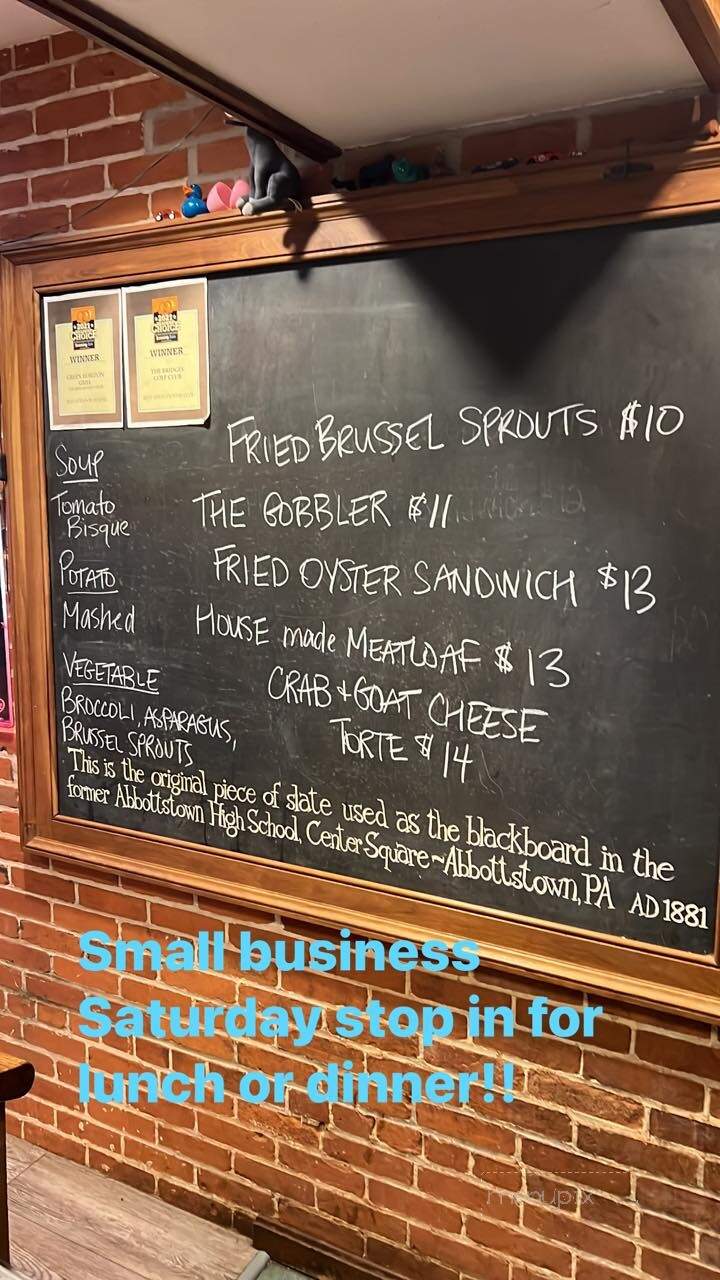 2021
CHOICE
WINNER
GREEN HORIZON
GRILL
2021
CHOICE
WINNER
THE BRIDGES
GOLF CLUB
FRIED BRUSSEL SPROUTS $10
Soup
Tomato
Bisque
THE GOBBLER $11
POTATO
Mashed
FRIED OYSTER SANDWICH $13
HOUSE made MEATLOAF $13
VEGETABLE
BROCCOLI, ASPARAGUS,
BRUSSEL SPROUTS
CRAB + GOAT CHEESE
TORTE $14
This is the original piece of slate used as the blackboard in the
former Abbottstown High School, Center Square ~ Abbottstown, PA AD 1881
Small business
Saturday stop in for
lunch or dinner!!
menupix